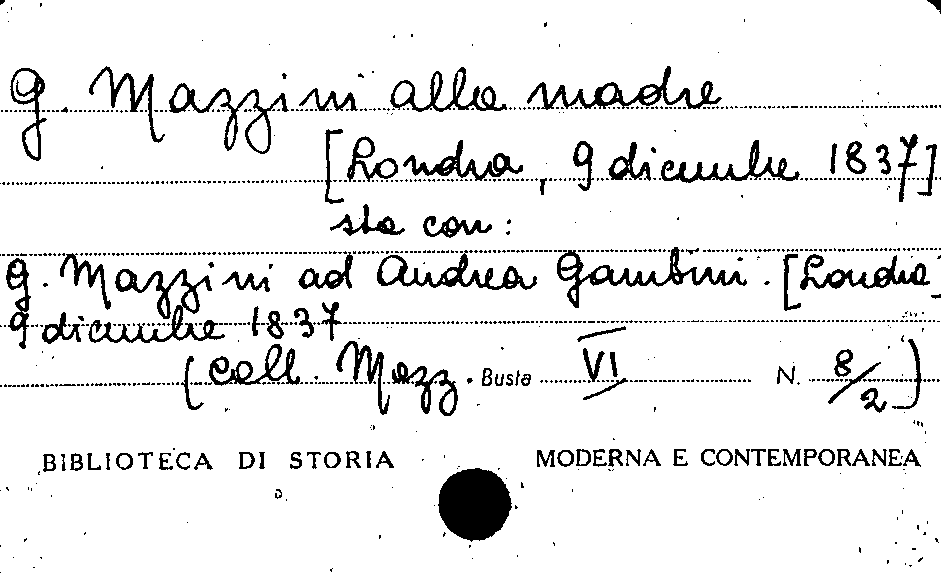 G. Mazzini alla madre
[Londra, 9 dicembre 1837]
sta con:
G. Mazzini ad Andrea Gambini. [Londra
9 dicembre 1837
(Coll. Mazz. Busta VI N. 8/2)
BIBLIOTECA DI STORIA MODERNA E CONTEMPORANEA